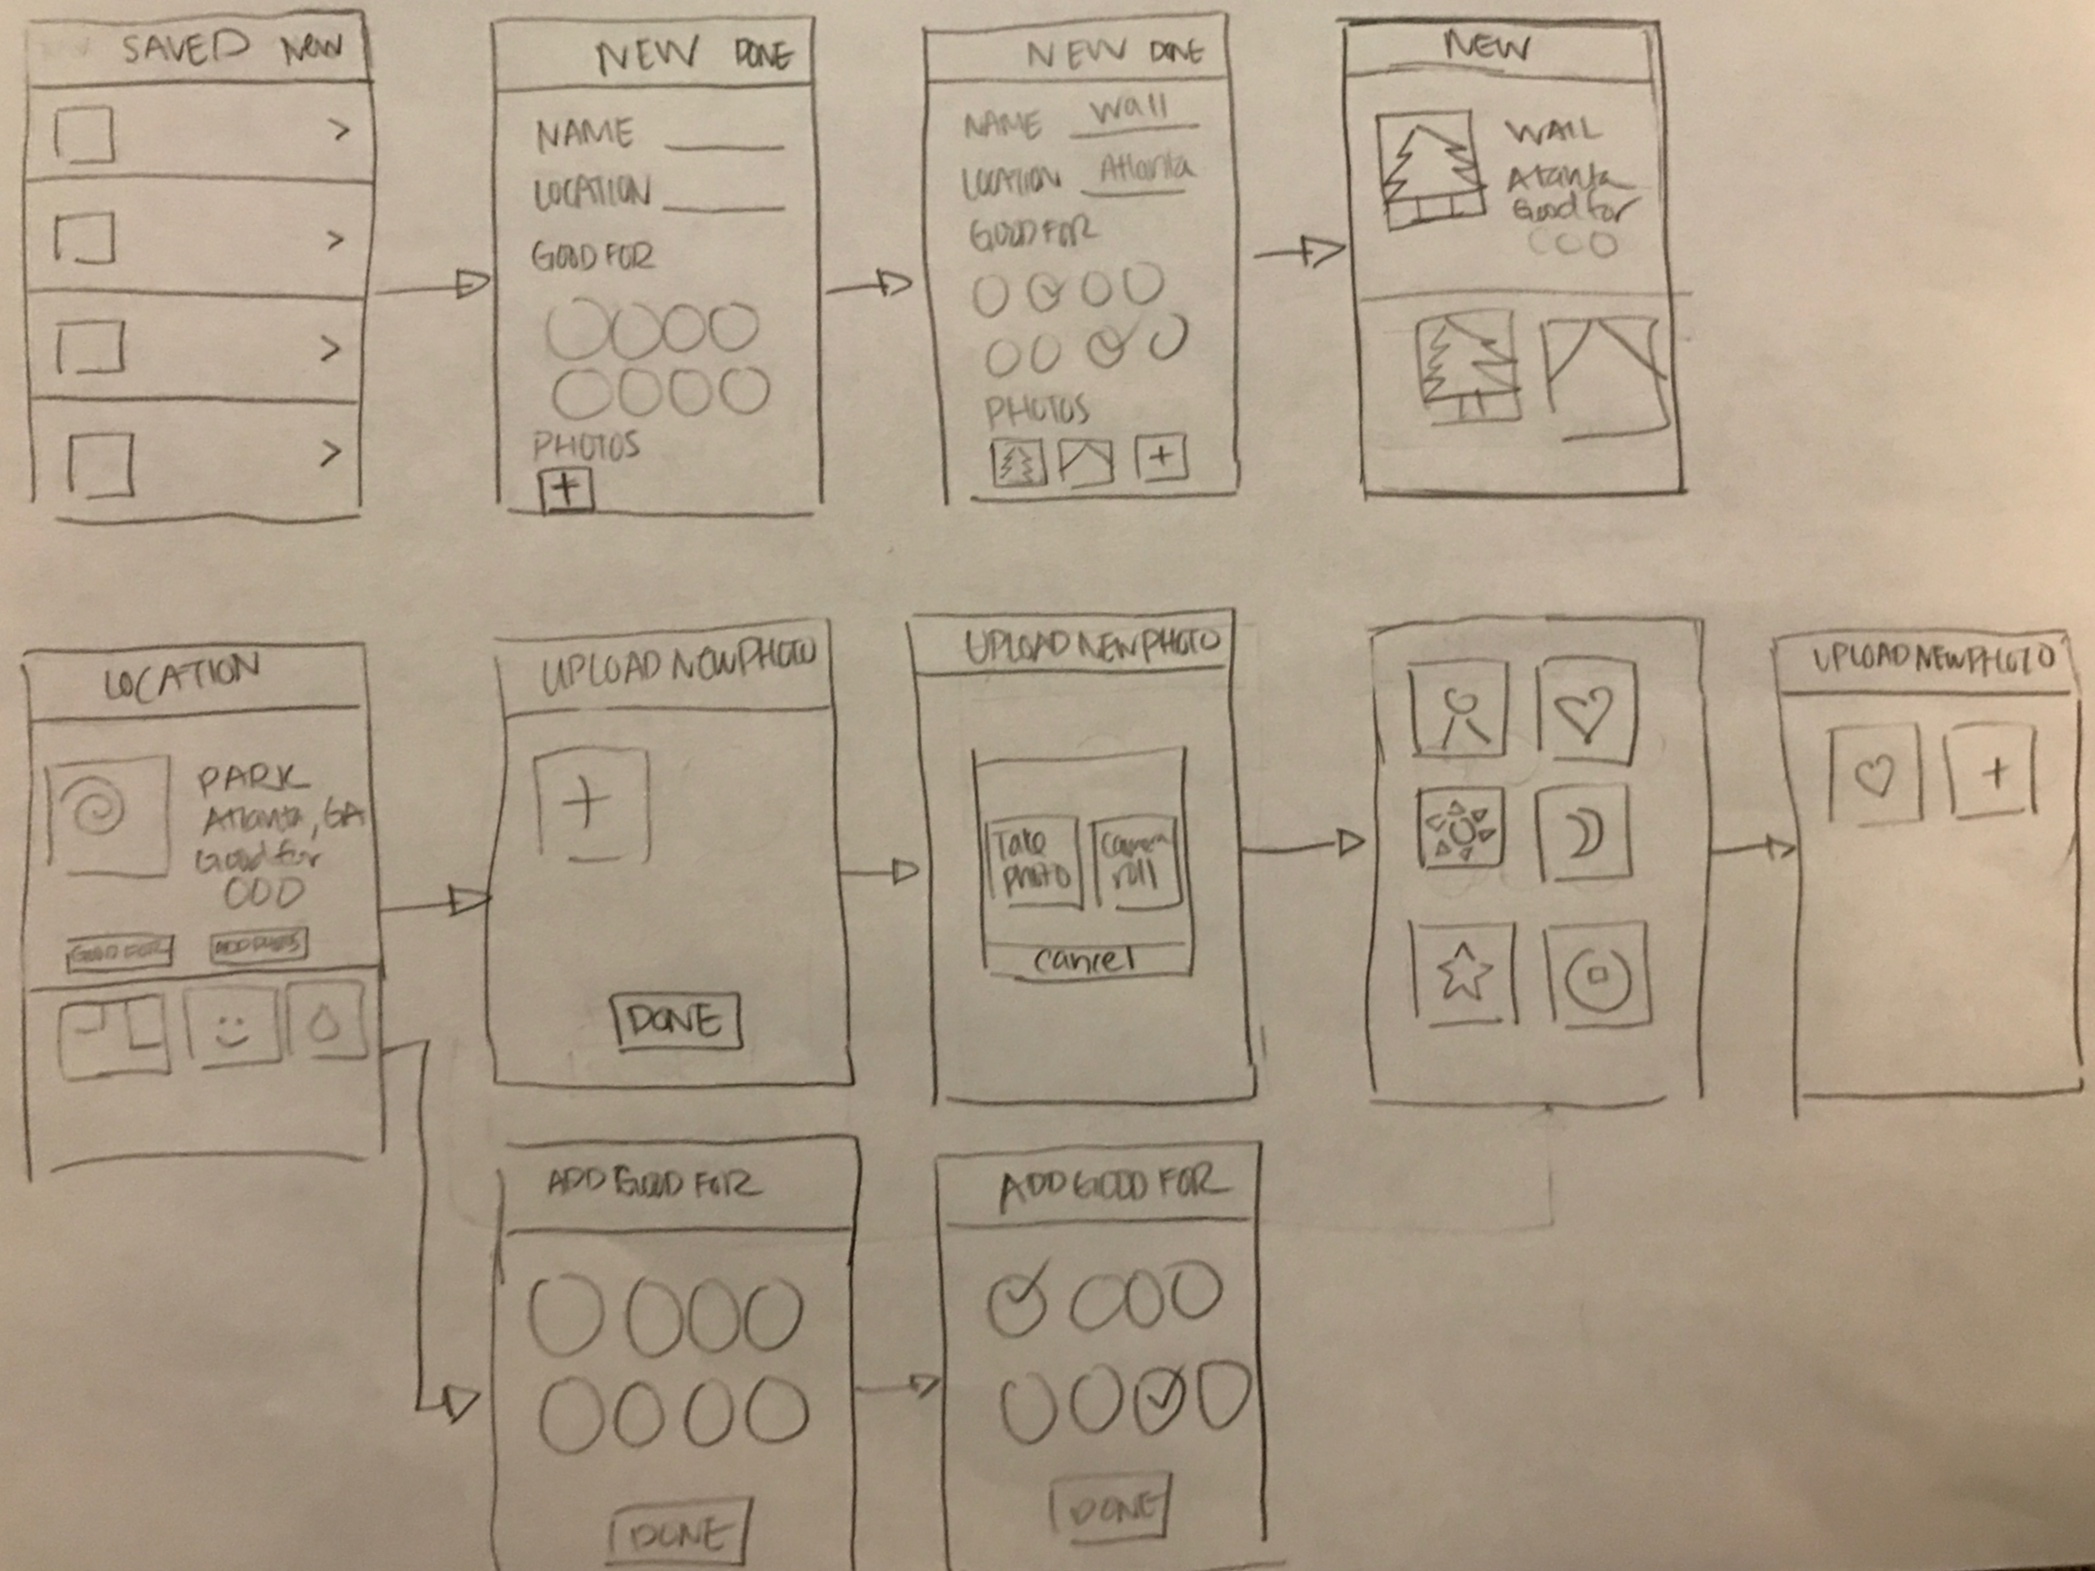 SAVED New
NEW DONE
NAME
LOCATION
GOOD FOR
PHOTOS
+
NEW DONE
NAME Wall
LOCATION Atlanta
GOOD FOR
PHOTOS
+
NEW
WALL
Atanta
Good for
LOCATION
PARK
Atlanta, GA
Good for
GOOD FOR ADD PHOTOS
UPLOAD NEW PHOTO
+
DONE
UPLOAD NEW PHOTO
Take photo
Camera roll
cancel
UPLOAD NEW PHOTO
+
ADD GOOD FOR
DONE
ADD GOOD FOR
DONE